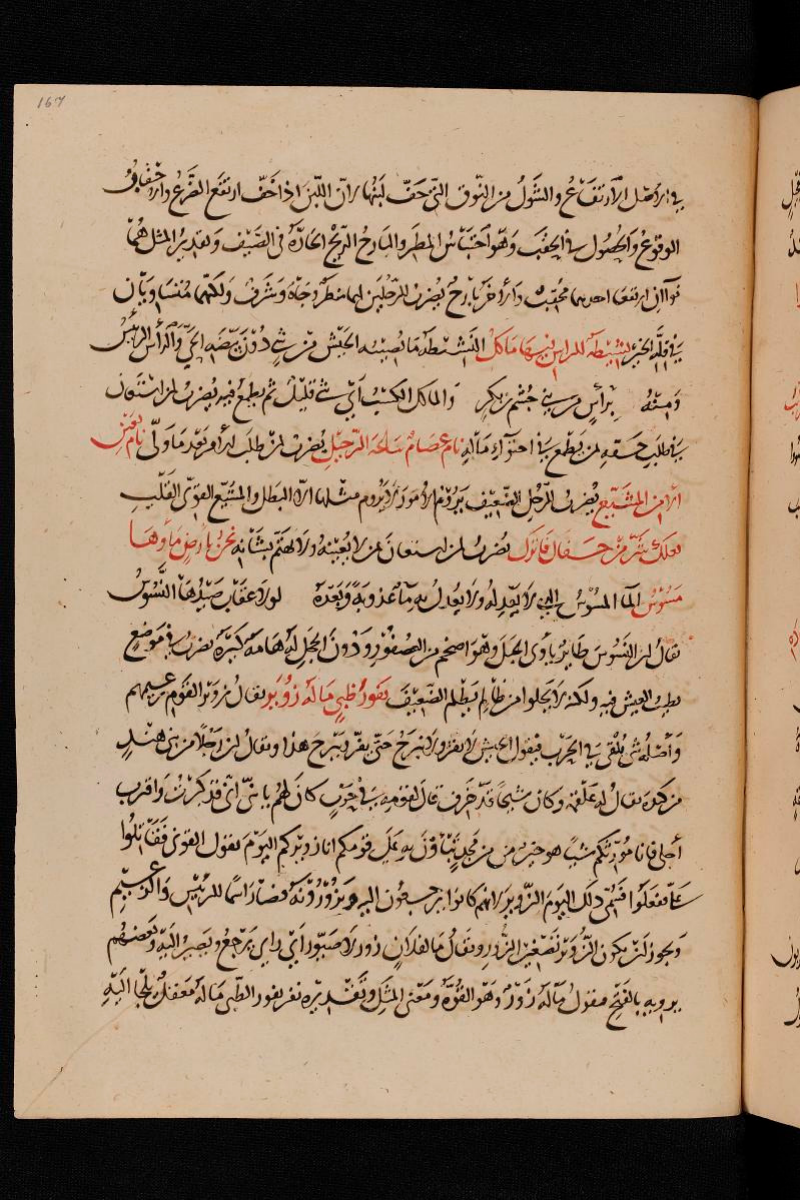 167
في الأصل الارتفاع والشول من النوق التي خف لبنها لان اللبن اذا خف ارتفع الضرع والاخفاق
الوقوع والحصول في الحقب وهو احتباس المطر والبارح الريح الحارة في الصيف وتقدير المثل هما
نوآان ارتفعا احدهما محقب والاخر بارح يضرب للرجلين لهما منظر وجاه وشرف ولكنهما متساويان
في قلة الخير النشيطة للراس فيها ماكل النشيطة ما يصيبه الجيش من شي دون بيضة الحي والراس الرئيس
ومنه براس من بني جشم بن بكر والماكل الكسب اي شي قليل ثم يطمع فيه يضرب لمن استعان
في طلب حقه بمن يطمع في احتواء ماله نام عصام ساعة الرحيل يضرب لمن طلب الامر بعد ما ولى نام بعين
الامن المشيع يضرب للرجل الضعيف يروم الامور لا يروم مثلها الا البطل والمشيع القوي القلب
يضرب لمن استعان بمن لا يعينه ولا يهتم بشانه نحن بارض ماوها
مسوس الما المسوس الذي لا يعدله ولا يعدل به ماء عذوبة وبعده لولا عقاب صيدها النسوس
يقال ان النسوس طائر ياوي الجبل وهو اضخم من العصفور ودون الحجل له هامة كبيرة يضرب في موضع
يطيب العيش فيه ولكنه لا يخلوا من ظالم يظلم الضعيف نفور ظبي ما له زوير يقال زوير القوم زعيمهم
واصله شي يلقى في الحرب فيقول الجيش لا نفر ولا نبرح حتى يفر ويبرح هذا ويقال ان رجلا من بني هند
من كندة يقال له علقمة وكان شيخا قد خرف قال لقومه في حرب كان لهم يا بني اني قد كبرت واقرب
اجلي فانا مورثكم شيا هو خير من مجد تباؤن به على قومكم انا زويركم اليوم يقول القوني فقاتلوا
علي ففعلوا فسمي ذلك اليوم الزوير لانهم كانوا يرجعون اليه ويزورونه فصار اسما للرئيس والزعيم
ويجوز ان يكون الزوير تصغير الزور ويقال ما لفلان زور ولا صيور اي راي يرجع ويصير اليه وبعضهم
يرويه بالفتح فيقول ماله زور وهو القوة ومعنى المثل وتقديره نفر نفور الظبي ماله معقل يلجا اليه